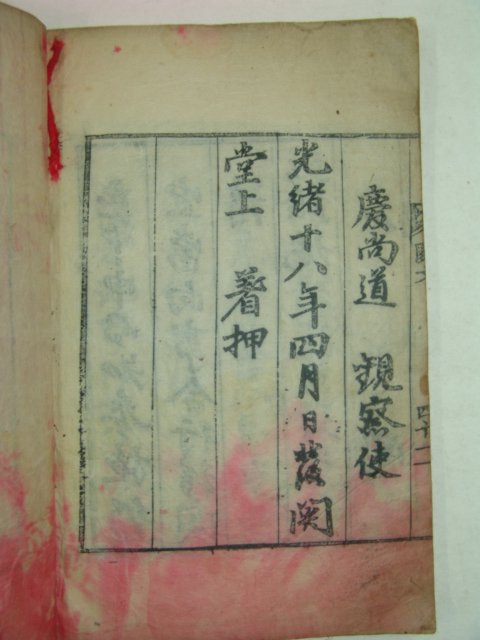 慶尚道 觀察使
光緒十八年四月日發関
堂上 着押